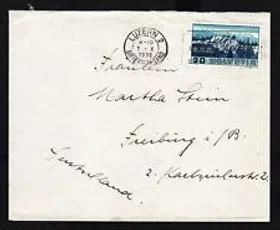 LUZERN 2
1938
30 HELVETIA
Fräulein
Martha Stein
Freiburg i/B.
2.
Deutschland.